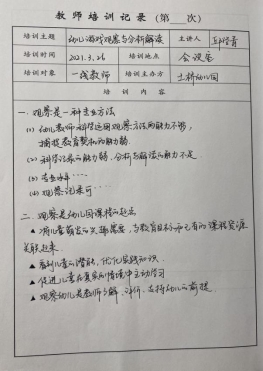 教师培训记录(第___次)
培训主题 幼儿游戏观察与分析解读 主讲人
培训时间 2021.3.26 培训地点 会议室
培训对象 一线教师 培训主办方 土桥幼儿园
培训内容
一. 观察是一种专业方法
(1) 幼儿教师科学运用观察方法的能力不够,
捕捉教育契机的能力弱.
(2) 科学记录的能力弱. 分析与解读的能力不足.
(3) 专业水平……
(4) 观察记录可……
二. 观察是幼儿园课程的起点
▲ 将儿童萌发的兴趣需要, 与教育目标和已有的课程资源
关联起来.
▲ 看到儿童的潜能, 优化实践知识.
▲ 促进儿童在真实的情境中主动学习
▲ 观察幼儿是教师了解、评价、支持幼儿的前提.